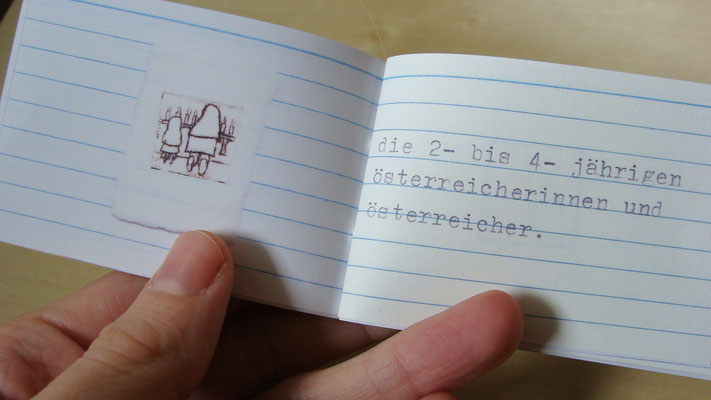 die 2- bis 4- jährigen
österreicherinnen und
österreicher.